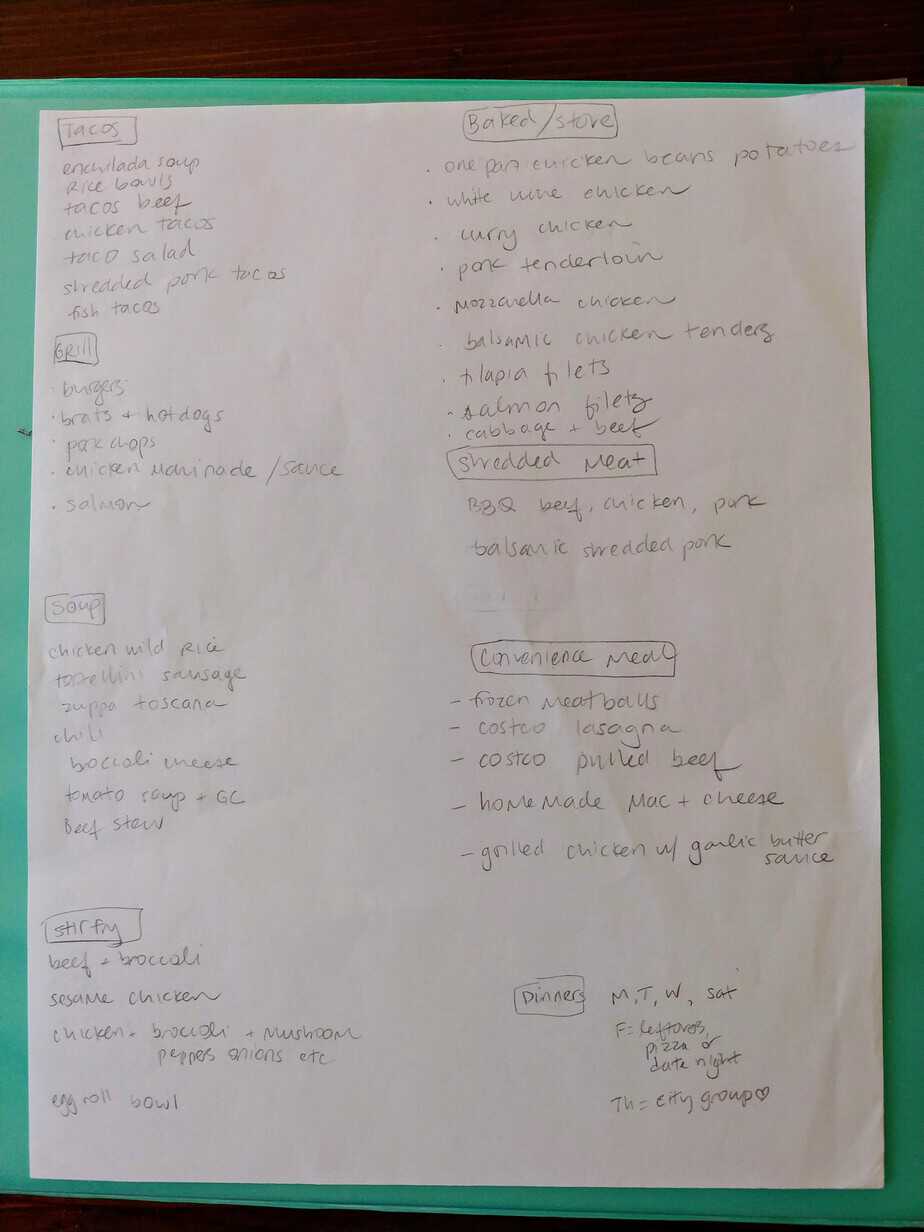 Tacos
enchilada soup
Rice bowls
tacos beef
chicken tacos
taco salad
shredded pork tacos
fish tacos
Grill
· burgers
· brats + hotdogs
· pork chops
· chicken marinade / sauce
· salmon
Soup
chicken wild Rice
tortellini sausage
zuppa toscana
chili
broccoli cheese
tomato soup + GC
Beef stew
stir fry
beef + broccoli
sesame chicken
chicken + broccoli + mushroom
peppers onions etc
egg roll bowl
Baked/stove
· one pan chicken beans potatoes
· white wine chicken
· curry chicken
· pork tenderloin
· Mozzarella chicken
· balsamic chicken tenders
· tilapia filets
· salmon filets
· cabbage + beef
Shredded Meat
BBQ beef, chicken, pork
balsamic shredded pork
Convenience Meal
- frozen meatballs
- costco lasagna
- costco pulled beef
- homemade Mac + cheese
- grilled chicken w/ garlic butter
sauce
Dinners M, T, W, sat
F = leftovers,
pizza or
date night
Th = city group ♡